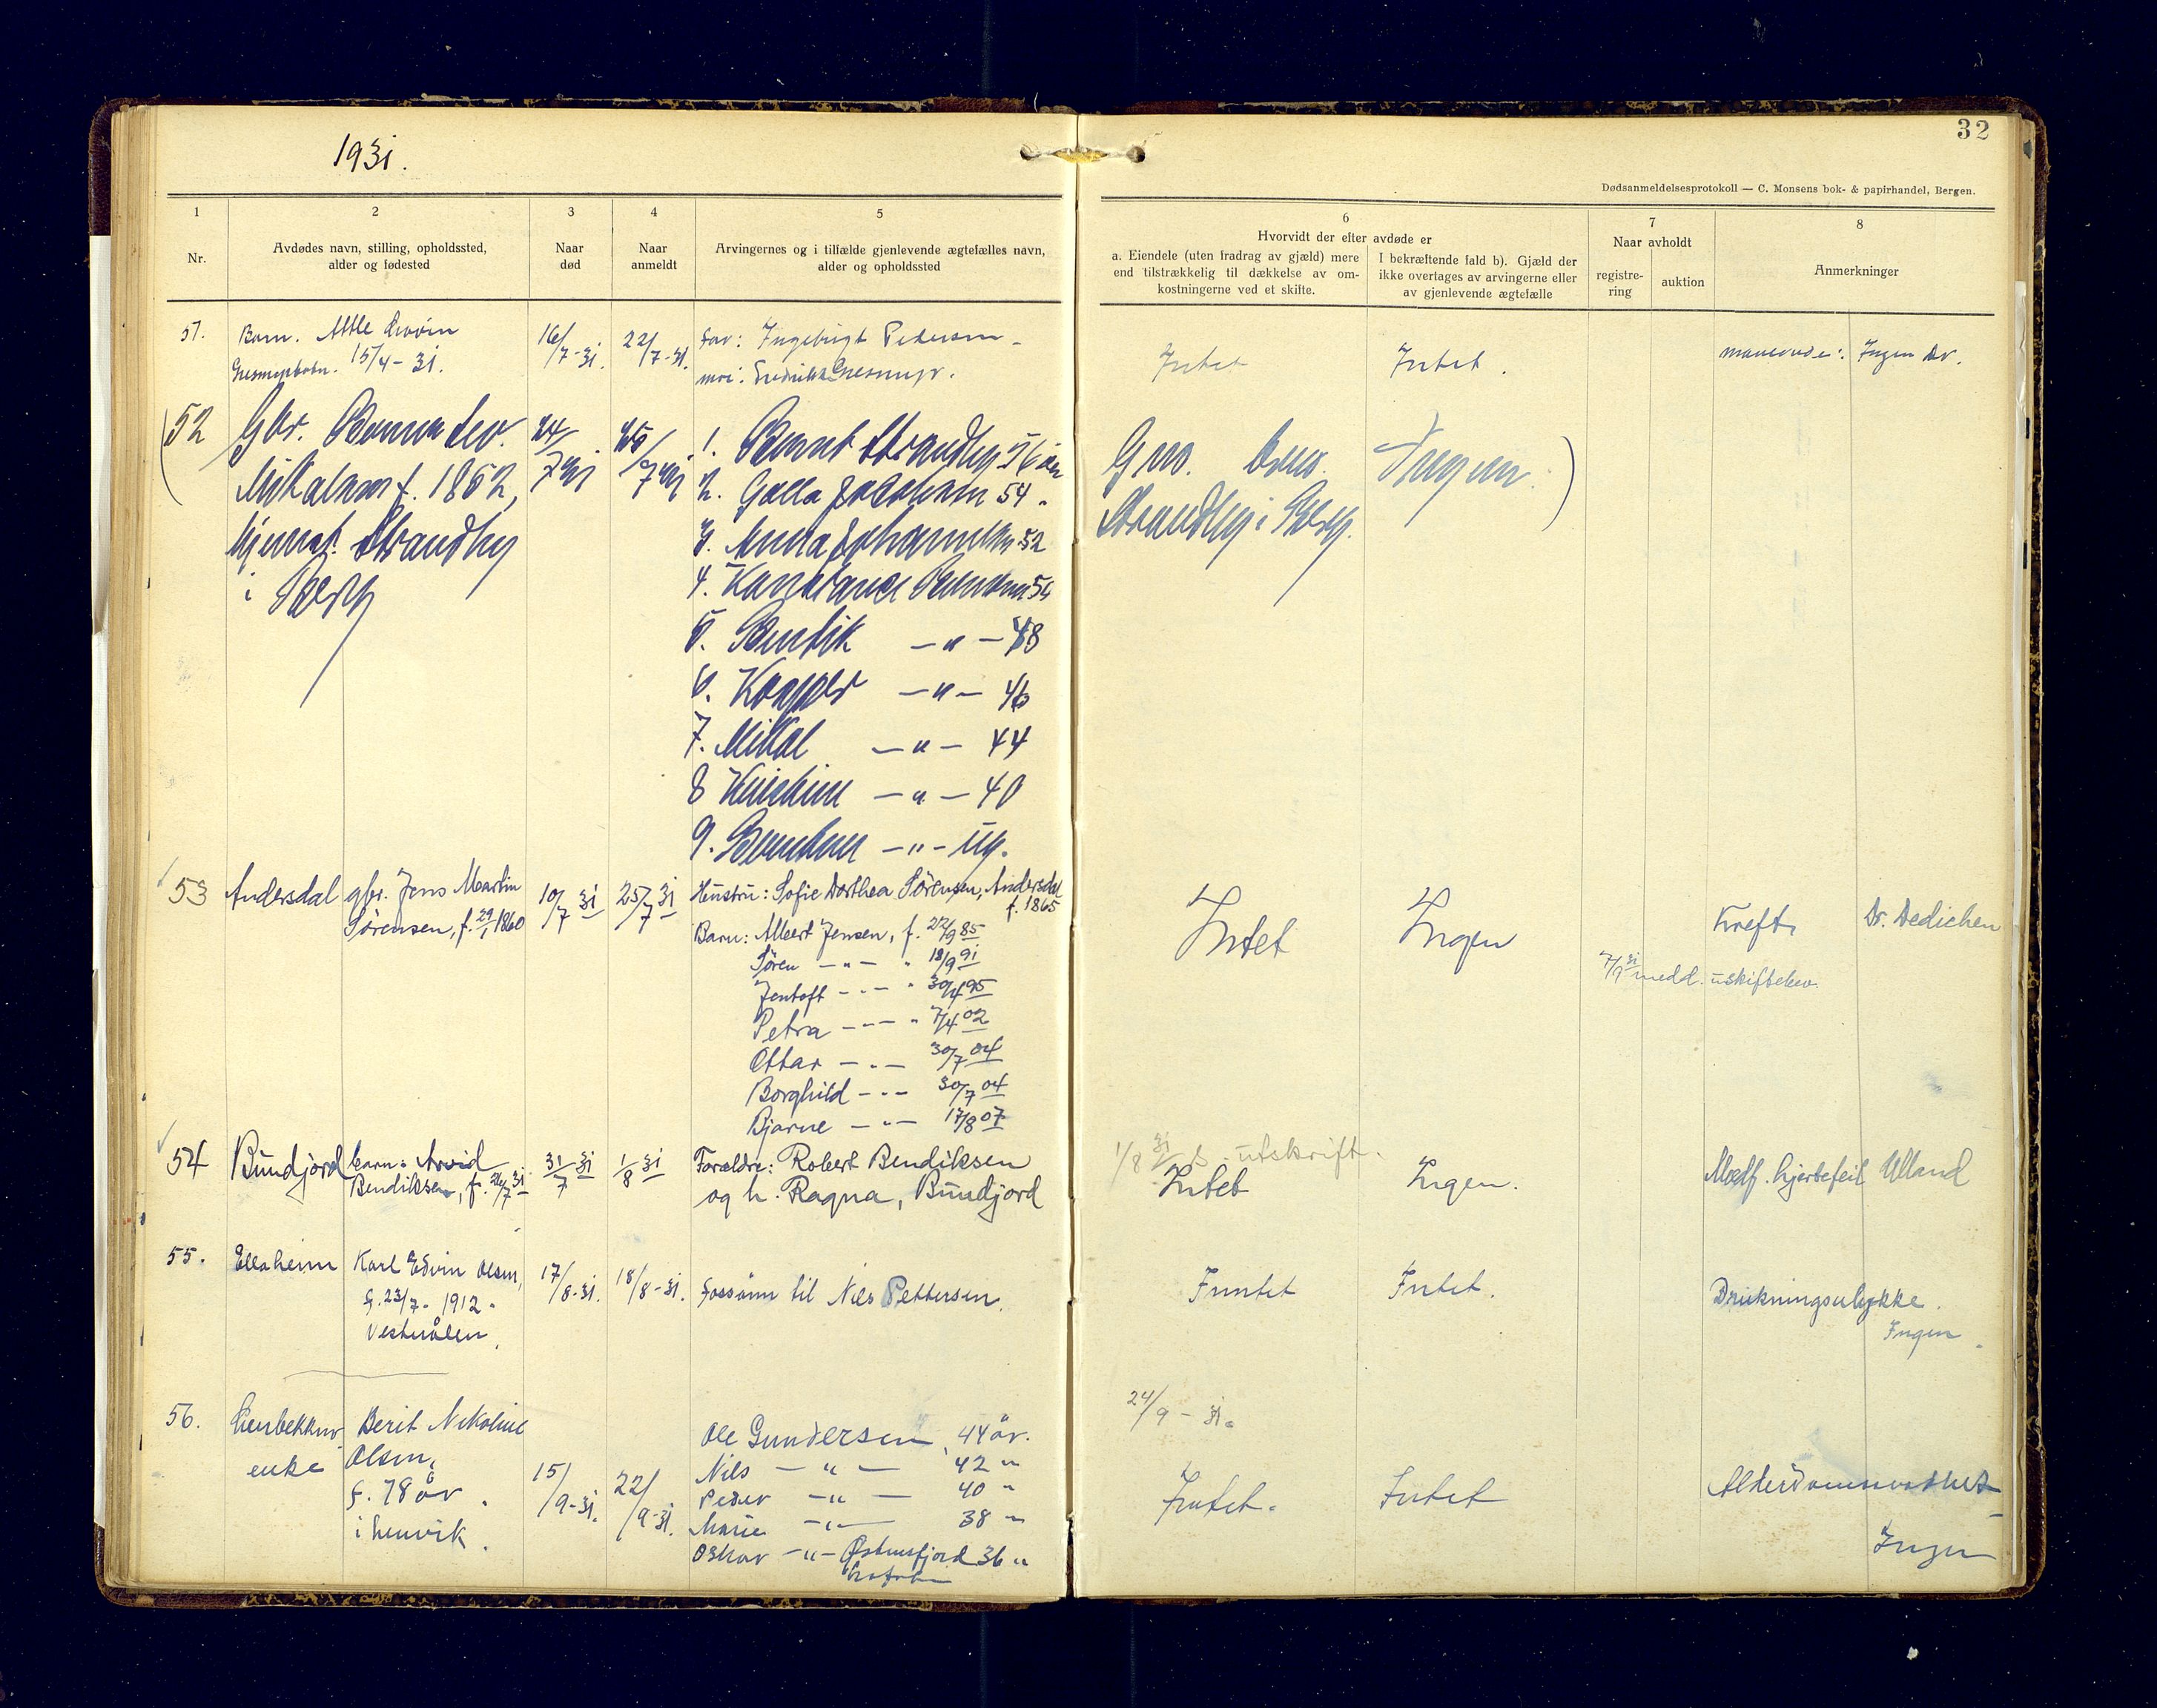 1931.
32
Dødsanmeldelsesprotokoll — C. Monsens bok- & papirhandel, Bergen.
1
2
3
4
5
6
7
8
Nr.
Avdødes navn, stilling, opholdssted,
alder og fødested
Naar
død
Naar
anmeldt
Arvingernes og i tilfælde gjenlevende ægtefælles navn,
alder og opholdssted
Hvorvidt der efter avdøde er
a. Eiendele (uten fradrag av gjæld) mere
end tilstrækkelig til dækkelse av om-
kostningerne ved et skifte.
I bekræftende fald b). Gjæld der
ikke overtages av arvingerne eller
av gjenlevende ægtefælle
Naar avholdt
registre-
ring
auktion
Anmerkninger
51.
Barn. Atle
15/4 - 31.
16/7-31.
22/7-31.
Far: Ingebrigt Pedersen
mor: Fredrikke
Intet
Intet.
Ingen Dr.
(52
Gbr.
f. 1852,
Strandby
i Berg
24/7 31
25/7 31
1. Bernt Strandby 56 år
2. Jakobsen 54 "
3. Anna Johannesen 52
4. Konstance 50
5. Bendik —"— 48
6. Kasper —"— 46
7. Mikal —"— 44
8 —"— 40
9. —"—
Gno. bno.
Strandby i Berg.
Ingen.)
53
Andersdal
gbr. Jens Martin
Sörensen, f. 29/1 1860
10/7 31
25/7 31
Hustru: Sofie Dorthea Sörensen, Andersdal
f. 1865
Barn: Albert Jensen, f. 22/9 85
Sören —"— " 18/9 91
Jentoft —"— " 30/4 95
Petra —"— " 7/4 02
Ottar —"— 30/7 04
Borghild —"— 30/7 04
Bjarne —"— 17/8 07
Intet
Ingen
Kreft,
Dr. Dedichen
7/9 31 medd. uskiftebev.
54
Bundjord
barn: Arvid
Bendiksen, f. 26/7 31
31/7 31
1/8 31
Forældre: Robert Bendiksen
og h. Ragna, Bundjord
1/8 31 utskrift.
Intet
Ingen.
Medf. hjertefeil
Ulland
55.
Ellaheim
Karl Edvin Olsen,
f. 23/7 - 1912 -
Vesterålen.
17/8-31.
18/8-31.
Fossönn til Nils Pettersen.
Inntet
Intet.
Drukningsulykke.
Ingen.
56.
enke
Berit Nikoline
Olsen,
f. 78 år.
i Lenvik.
15/9-31.
22/9-31.
Ole Gundersen, 44 år.
Nils —"— 42 "
Peder —"— 40 "
Marie —"— 38 "
Oskar —"— Østnesfjord 36 "
Lofoten
24/9 - 31.
Intet.
Intet
Alderdomssvakhet
Ingen